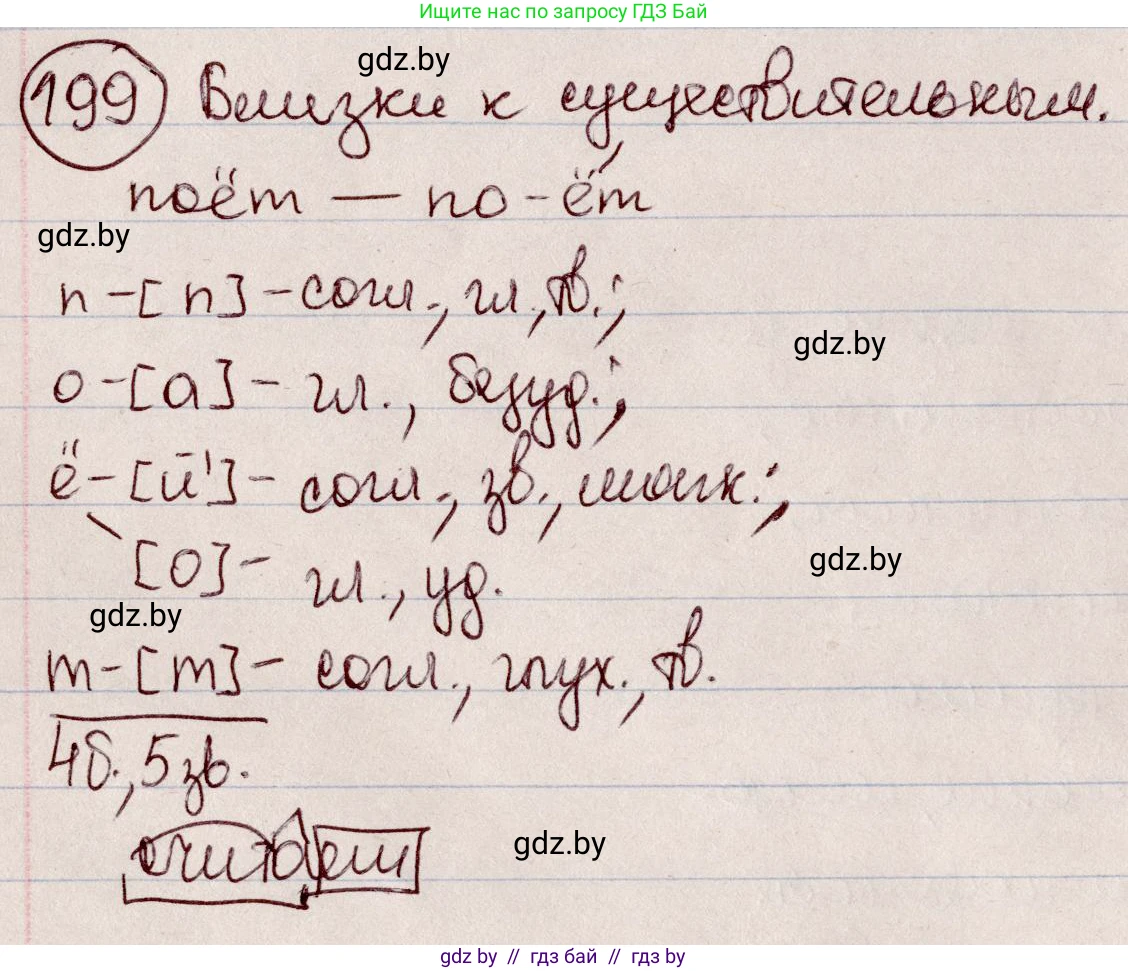 Ищите нас по запросу ГДЗ Бай
gdz.by
199 Близки к существительным.
поёт — по-ёт
gdz.by
п-[п]-согл., гл., тв.;
gdz.by
о-[а]- гл., безуд.;
ё-[й']- согл., зв., мягк.;
[о]- гл., уд.
gdz.by
gdz.by
т-[т]- согл., глух., тв.
4б., 5 зв.
считаем
gdz.by
gdz by // гдз бай // гдз by